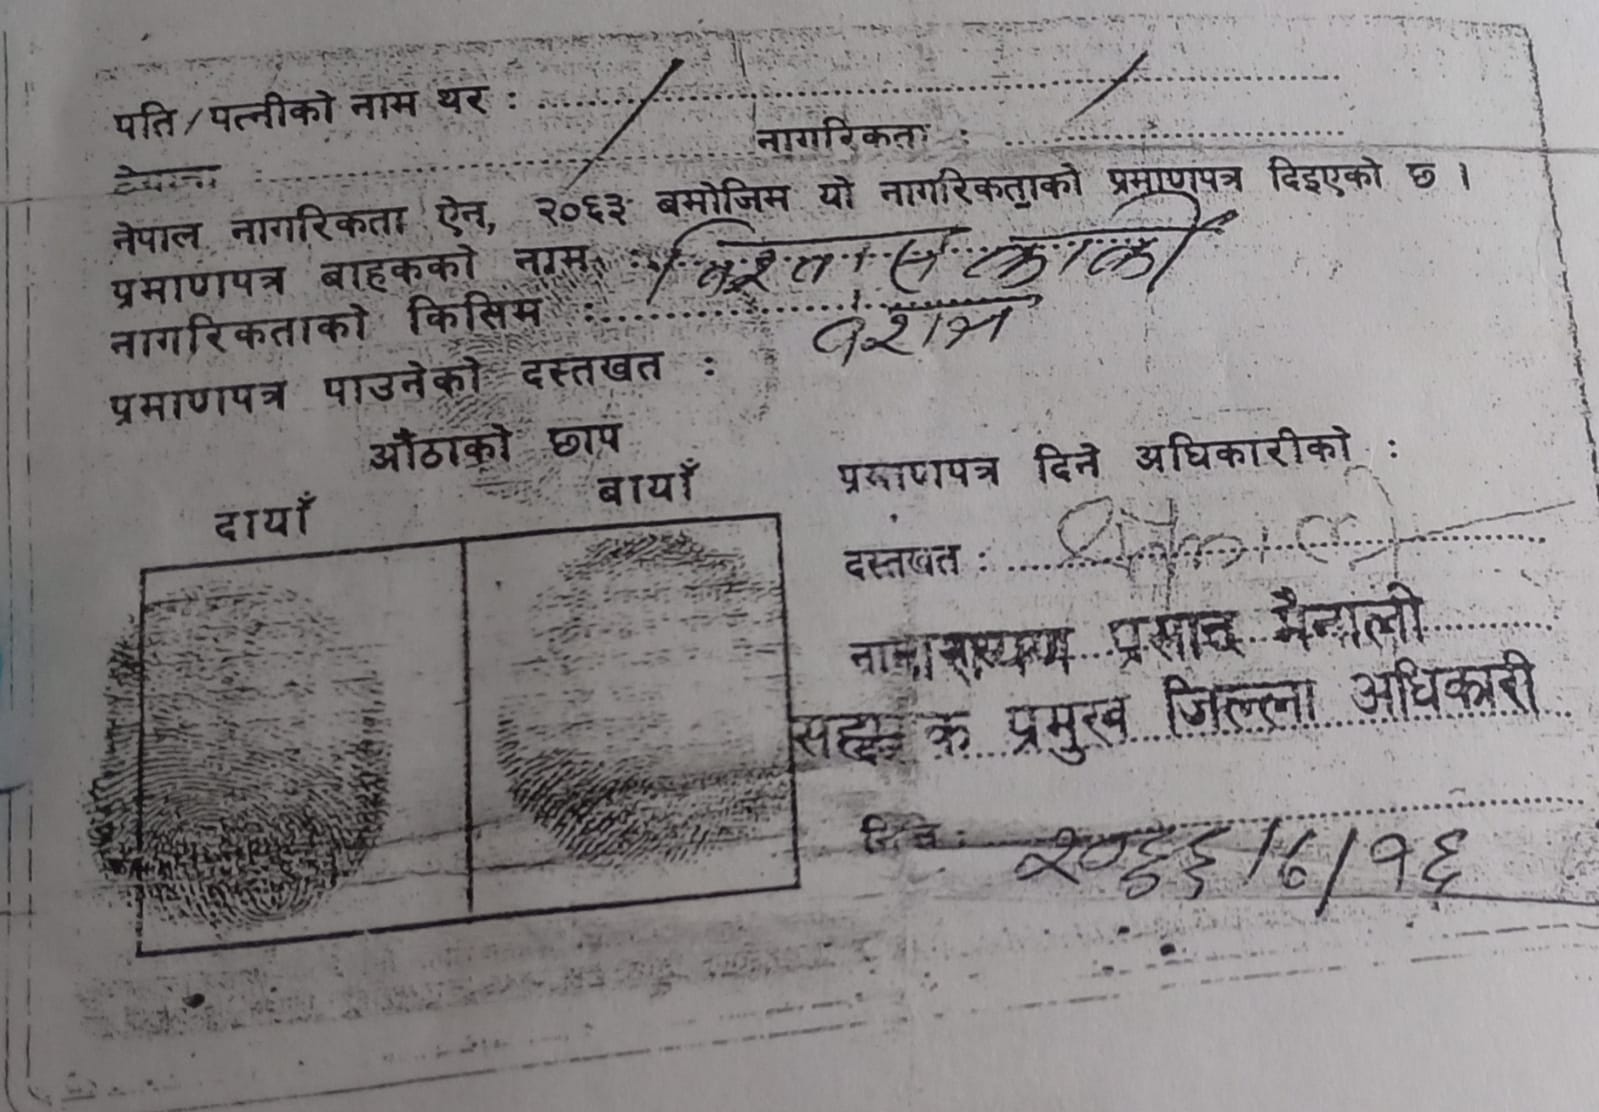 पति/पत्नीको नाम थर :
ठेगाना : नागरिकता :
नेपाल नागरिकता ऐन, २०६३ बमोजिम यो नागरिकताको प्रमाणपत्र दिइएको छ ।
प्रमाणपत्र बाहकको नाम : कार्की
नागरिकताको किसिम : वंशज
प्रमाणपत्र पाउनेको दस्तखत :
औंठाको छाप
दायाँ बायाँ
प्रमाणपत्र दिने अधिकारीको :
दस्तखत :
प्रसाद मैनाली
सहायक प्रमुख जिल्ला अधिकारी
मिति : २०६६/६/१६